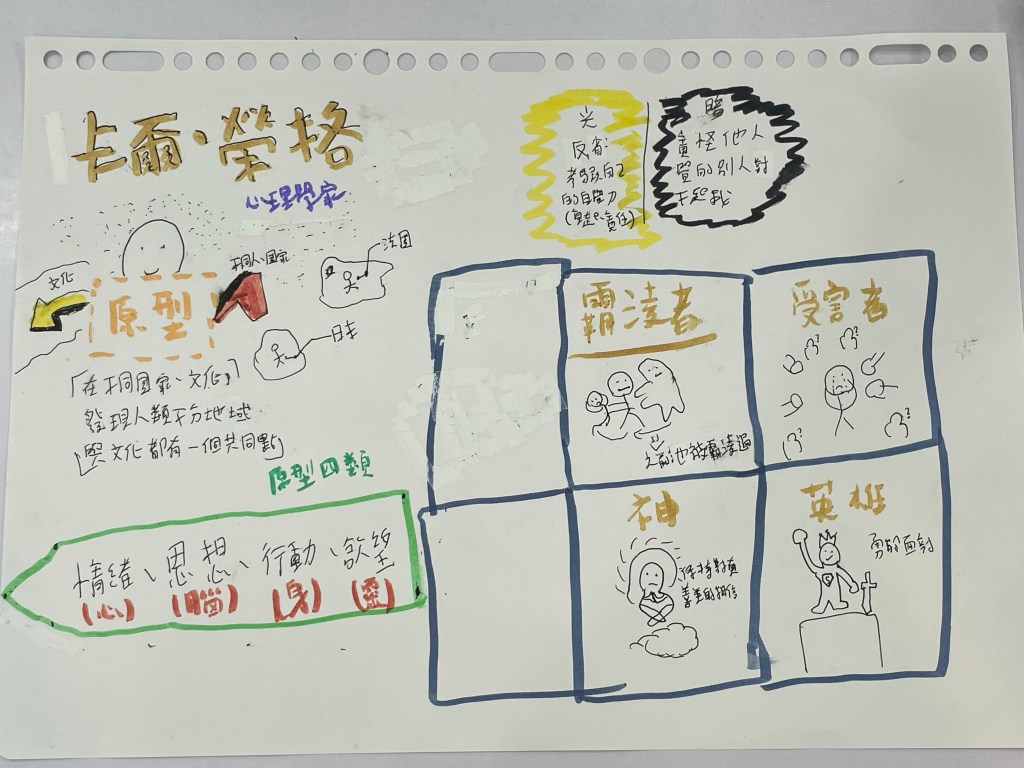 卡爾·榮格
心理學家
光
反省:
考驗自己
的自學力
(負起責任)
暗
責怪他人
覺的別人對
不起我
文化
不同人、國家
法国
日本
原型
「在不同國家、文化」
發現人類不分地域
與文化都有一個共同點
原型四類
情緒、思想、行動、慾望
(心) (腦) (身) (靈)
霸凌者
之前也被霸凌過
受害者
神
保持對真
善美的相信
英雄
勇的面對